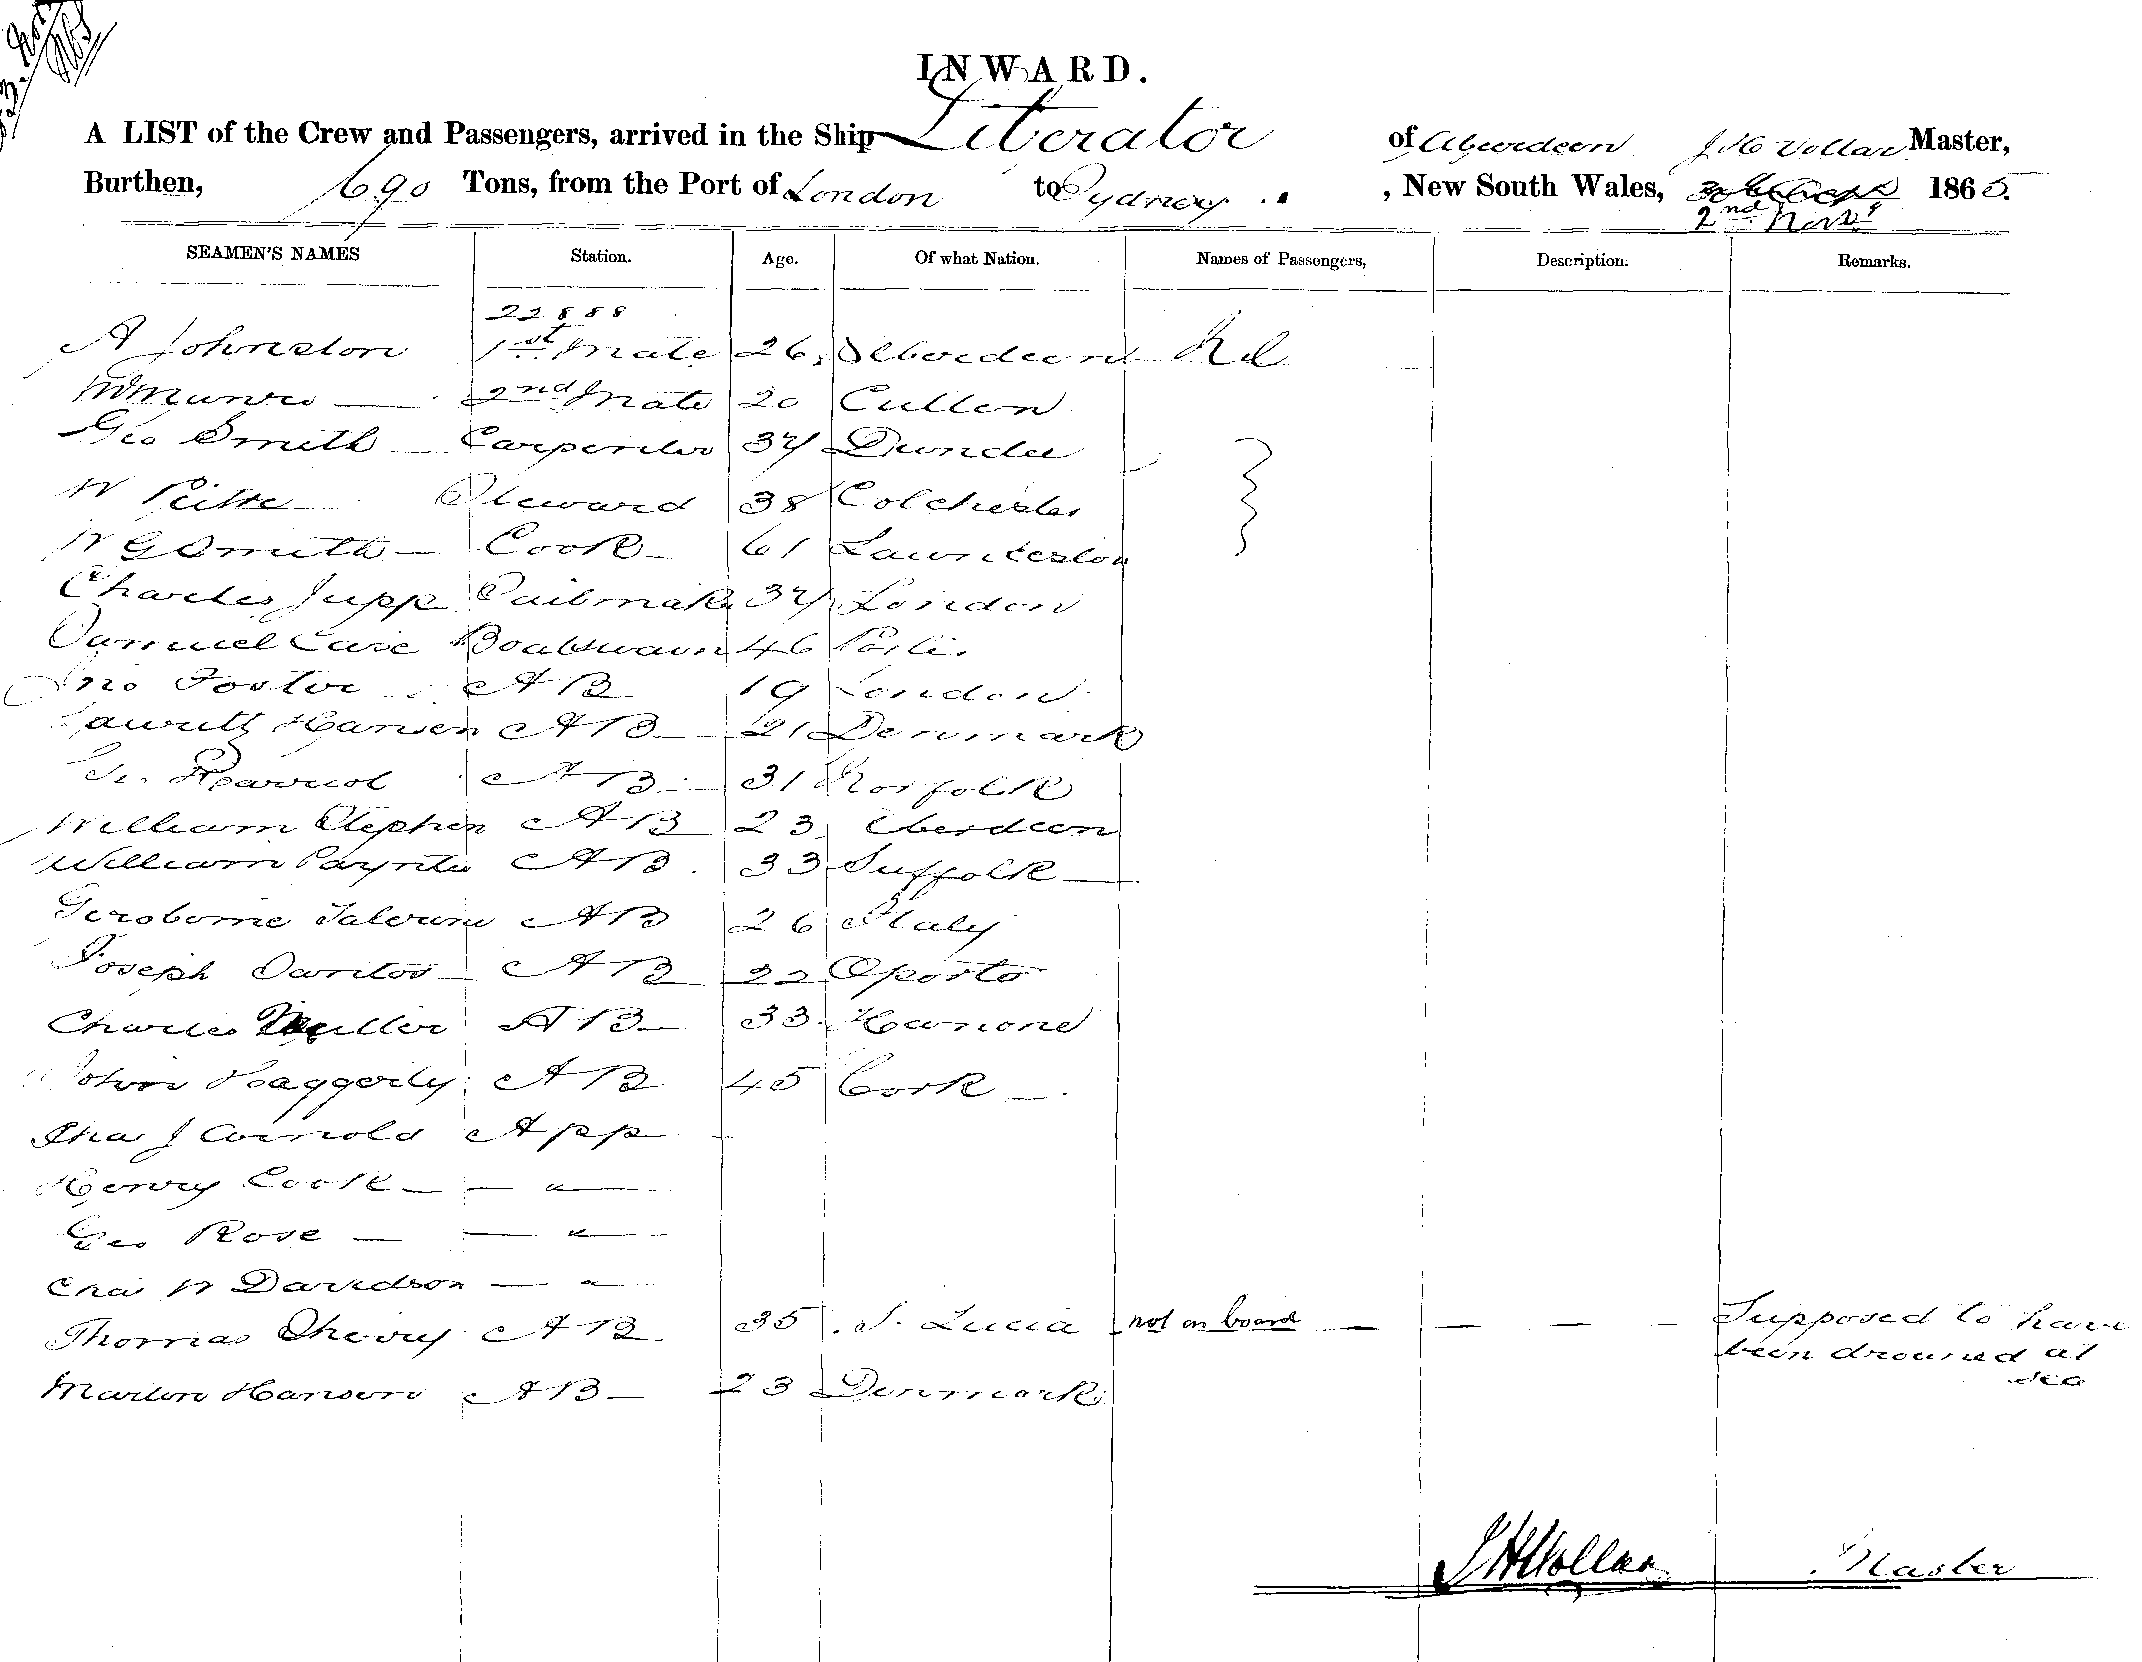 INWARD.
A LIST of the Crew and Passengers, arrived in the Ship Liberator of Aberdeen J H Vollar Master,
Burthen, 690 Tons, from the Port of London to Sydney , New South Wales, 1865.
2nd Novr
SEAMEN'S NAMES Station. Age. Of what Nation. Names of Passengers, Description. Remarks.
22888
A Johnston 1st Mate 26 Aberdeen Nil
W Munro 2nd Mate 20 Cullen
Geo Smith Carpenter 37 Dundee
W Steward 38 Colchester
W G Smith Cook 61 Launceston
Charles Jupp Sailmaker 37 London
Samuel Case Boatswain 46
Jno Foster AB 19 London
Lauritz Hansen AB 21 Denmark
AB 31 Norfolk
William Stephen AB 23 Aberdeen
William Paynter AB 33 Suffolk
AB 26 Italy
Joseph Santos AB 22 Oporto
Charles Muller AB 33
John Haggerty AB 45 Cork
Chas J Arnold App
Henry Cook — " —
Geo Rose — " —
Chas W Davidson — " —
Thomas Cherry AB 35 S. Lucia not on board — — — — Supposed to have
been drowned at
sea
Martin Hansen AB 23 Denmark
J H Vollar Master